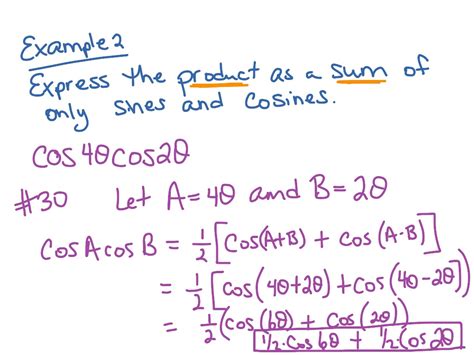 Example 2
Express the product as a sum of
only sines and cosines.
cos4θcos2θ
#30 Let A=4θ and B=2θ
cosAcosB = 1/2[cos(A+B) + cos(A-B)]
= 1/2[cos(4θ+2θ)+cos(4θ-2θ)]
= 1/2(cos(6θ) + cos(2θ))
1/2·cos6θ + 1/2cos2θ